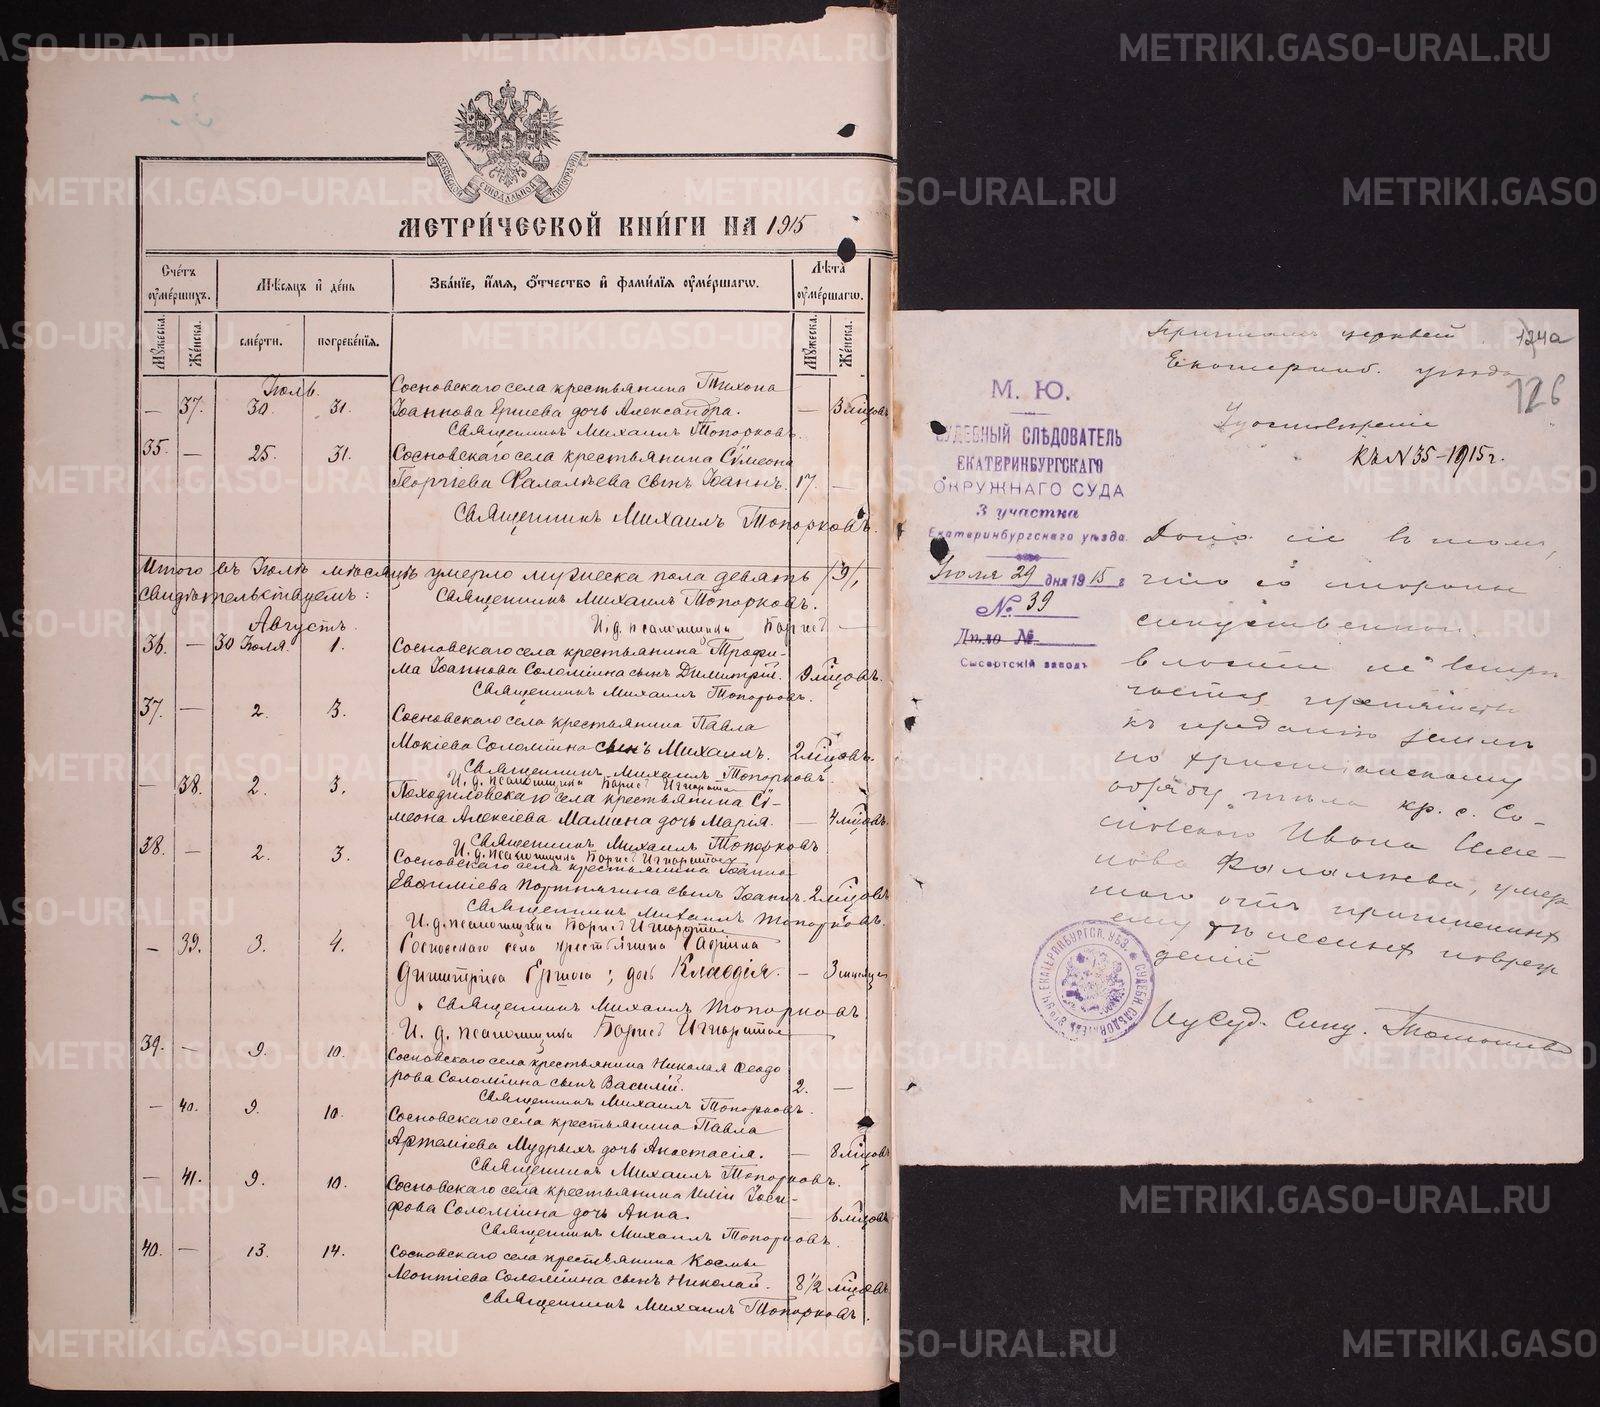 МОСКОВСКОЙ СѴНОДАЛЬНОЙ ТИПОГРАФІИ
МЕТРИ́ЧЕСКОЙ КНИ́ГИ НА 1915
Сче́тъ оу҆ме́ршихъ.
Мѣ́сяцъ и҆ де́нь
Зва́нїе, и҆́мя, ѻ҆́тчество и҆ фами́лїѧ оу҆ме́ршагѡ.
Лѣ́та оу҆ме́ршагѡ.
Мꙋ́жеска.
Же́нска.
сме́рти.
погребе́нїѧ.
Мꙋ́жеска.
Же́нска.
Іюль.
— 37. 30. 31. Сосновскаго села крестьянина Тихона
Іоаннова Ершева дочь Александра. — 3 мѣсяцовъ
Священникъ Михаилъ Топорковъ.
35. — 25. 31. Сосновскаго села крестьянина Сѵмеона
Георгіева Фалалѣева сынъ Іоаннъ. 17. —
Священникъ Михаилъ Топорковъ.
Итого въ Іюлѣ мѣсяцѣ умерло мужеска пола девять /9/,
свидѣтельствуемъ:
Священникъ Михаилъ Топорковъ.
И. д. псаломщика Борисъ
Августъ.
36. — 30 Іюля. 1. Сосновскаго села крестьянина Трофи-
ма Іоаннова Соломѣина сынъ Димитрій. 9 мѣсяцовъ.
Священникъ Михаилъ Топорковъ.
37. — 2. 3. Сосновскаго села крестьянина Павла
Мокіева Соломѣина сынъ Михаилъ. 2 мѣсяцовъ.
Священникъ Михаилъ Топорковъ.
И. д. псаломщика Борисъ Игноратовъ
— 38. 2. 3. Походиловскаго села крестьянина Сѵ-
меона Алексіева Мамина дочь Марія. — 4 мѣсяцовъ.
Священникъ Михаилъ Топорковъ
И. д. псаломщика Борисъ Игноратовъ
38. — 2. 3. Сосновскаго села крестьянина Іоанна
Евѳиміева Портнягина сынъ Іоаннъ. 2 мѣсяцовъ
Священникъ Михаилъ Топорковъ.
И. д. псаломщика Борисъ Игноратовъ
— 39. 3. 4. Сосновскаго села крестьянина Гавріила
Димитріева Ершова; дочь Клавдія. — 3 мѣсяца
Священникъ Михаилъ Топорковъ
И. д. псаломщика Борисъ Игноратовъ
39. — 9. 10. Сосновскаго села крестьянина Николая Ѳеодо
рова Соломѣина сынъ Василій. 2. —
Священникъ Михаилъ Топорковъ.
— 40. 9. 10. Сосновскаго села крестьянина Павла
Артеміева Мудрыхъ дочь Анастасія. — 8 мѣсяцовъ
Священникъ Михаилъ Топорковъ.
— 41. 9. 10. Сосновскаго села крестьянина Иліи Іоси-
фова Соломѣина дочь Анна. — 6 мѣсяцовъ
Священникъ Михаилъ Топорковъ.
40. — 13. 14. Сосновскаго села крестьянина Космы
Леонтіева Соломѣина сынъ Николай. 8 1/2 мѣсяцовъ.
Священникъ Михаилъ Топорковъ.
Причтамъ церквей
Екатеринб. уѣзда
124а
126
М. Ю.
СУДЕБНЫЙ СЛѢДОВАТЕЛЬ
ЕКАТЕРИНБУРГСКАГО
ОКРУЖНАГО СУДА
3 участка
Екатеринбургскаго уѣзда.
Іюля 29 дня 1915 г
№ 39
Дѣло №
Сысертскій заводъ
Удостовѣреніе
Къ N 35-1915 г.
Дано сіе въ томъ,
что со стороны
слѣдственной
власти не встрѣ
чается препятствія
къ преданію землѣ
по христіанскому
обряду тѣла кр. с. Со-
сновскаго Ивана Семе-
нова Фалалѣева, умер
шаго отъ причиненныхъ
ему тѣлесныхъ повреж
деній
И д Суд. Слѣд.
METRIKI.GASO-URAL.RU